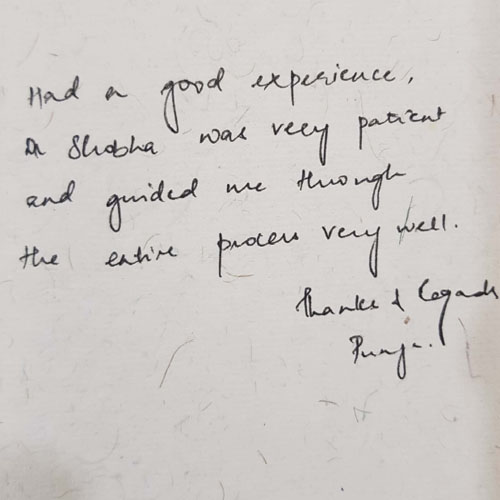 Had a good experience,
Dr Shobha was very patient
and guided me through
the entire process very well.
Thanks & Regards